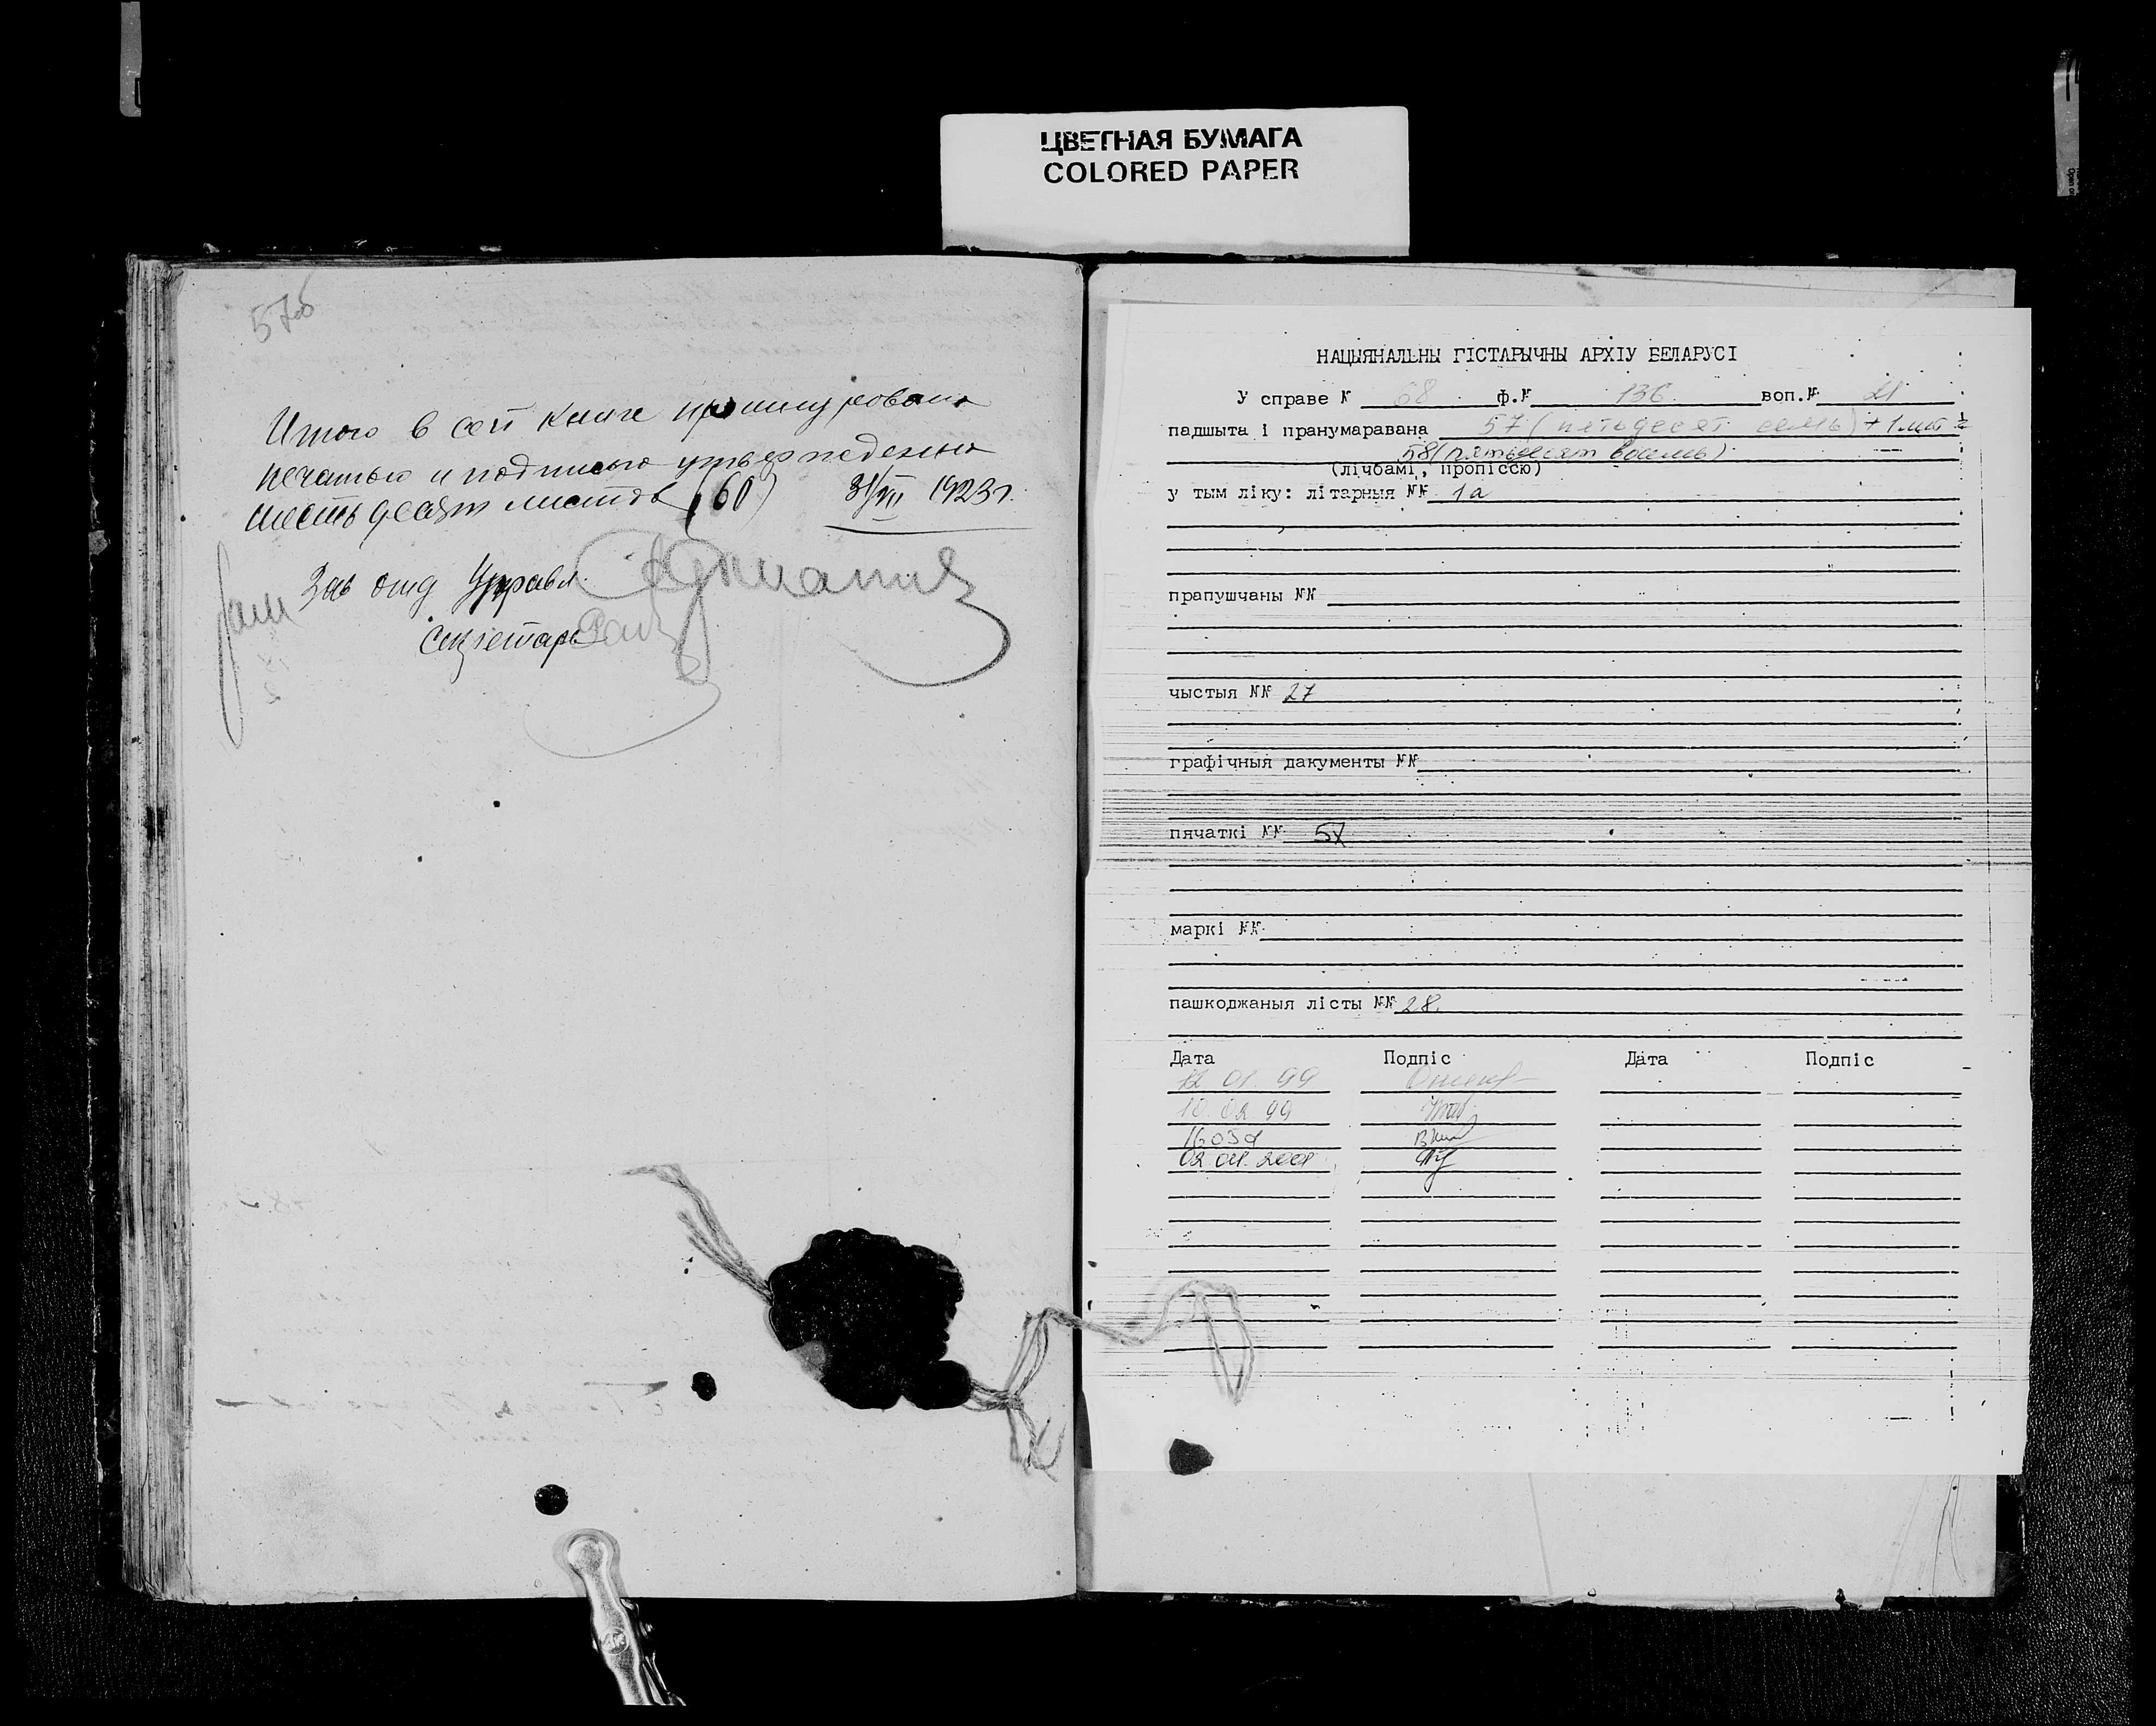 ЦВЕТНАЯ БУМАГА
COLORED PAPER
57об
Итого в сей книге пронумеровано
печатью и подписью утверждено
шестьдесят листов (60) 31/VII 1923 г.
Зав отд Управл.
Секретарь
НАЦЫЯНАЛЬНЫ ГІСТАРЫЧНЫ АРХІЎ БЕЛАРУСІ
У справе № 68 ф.№ 136 воп.№ 21
падшыта і пранумаравана 57 (пятьдесят семь) + 1 лит =
58 (пятьдесят восемь)
(лічбамі, пропіссю)
у тым ліку: літарныя №№ 1а
прапушчаны №№
чыстыя №№ 27
графічныя дакументы №№
пячаткі №№ 57
маркі №№
пашкоджаныя лісты №№ 28.
Дата Подпіс Дата Подпіс
12 01 99
10.02.99
02 04. 2001